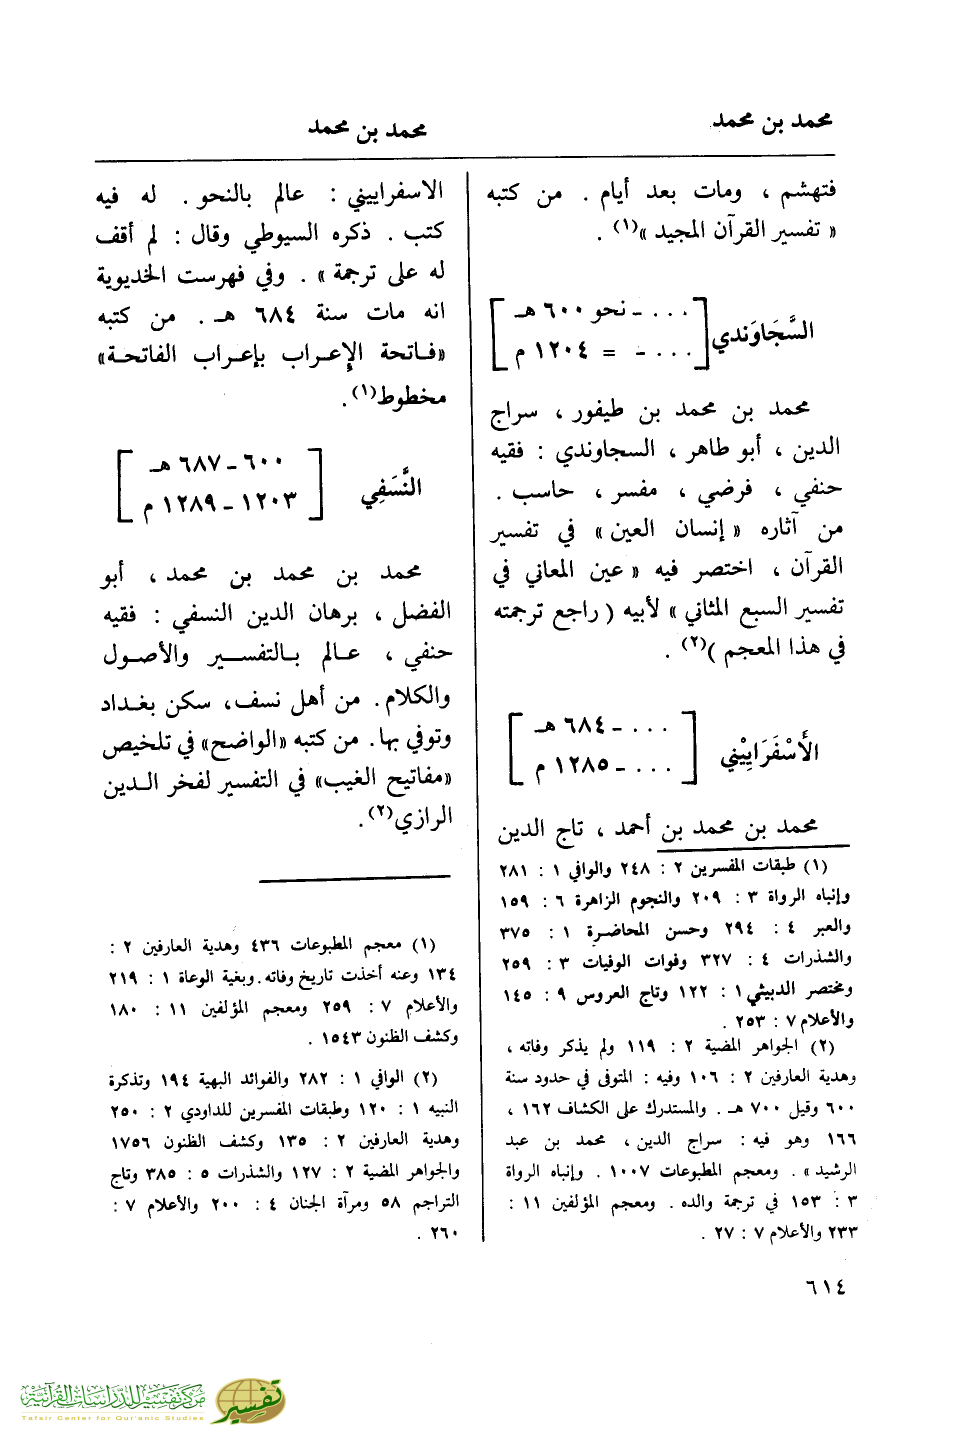 محمد بن محمد
محمد بن محمد
فتهشم ، ومات بعد أيام . من كتبه
« تفسير القرآن المجيد »(١) .
السَّجَاوَندي [ ... ـ نحو ٦٠٠ هـ
... ـ = ١٢٠٤ م ]
محمد بن محمد بن طيفور ، سراج
الدين ، أبو طاهر ، السجاوندي : فقيه
حنفي ، فرضي ، مفسر ، حاسب .
من آثاره « إنسان العين » في تفسير
القرآن ، اختصر فيه « عين المعاني في
تفسير السبع المثاني » لأبيه ( راجع ترجمته
في هذا المعجم )(٢) .
الأَسْفَرَايِيْني [ ... ـ ٦٨٤ هـ
... ـ ١٢٨٥ م ]
محمد بن محمد بن أحمد ، تاج الدين
(١) طبقات المفسرين ٢ : ٢٤٨ والوافي ١ : ٢٨١
وإنباه الرواة ٣ : ٢٠٩ والنجوم الزاهرة ٦ : ١٥٩
والعبر ٤ : ٢٩٤ وحسن المحاضرة ١ : ٣٧٥
والشذرات ٤ : ٣٢٧ وفوات الوفيات ٣ : ٢٥٩
ومختصر الدبيثي ١ : ١٢٢ وتاج العروس ٩ : ١٤٥
والأعلام ٧ : ٢٥٣ .
(٢) الجواهر المضية ٢ : ١١٩ ولم يذكر وفاته ،
وهدية العارفين ٢ : ١٠٦ وفيه : المتوفى في حدود سنة
٦٠٠ وقيل ٧٠٠ هـ . والمستدرك على الكشاف ١٦٢ ،
١٦٦ وهو فيه : سراج الدين ، محمد بن عبد
الرشيد » . ومعجم المطبوعات ١٠٠٧ . وإنباه الرواة
٣ : ١٥٣ في ترجمة والده . ومعجم المؤلفين ١١ :
٢٣٣ والأعلام ٧ : ٢٧ .
الاسفراييني : عالم بالنحو . له فيه
كتب . ذكره السيوطي وقال : لم أقف
له على ترجمة » . وفي فهرست الخديوية
انه مات سنة ٦٨٤ هـ . من كتبه
«فاتحة الإعراب بإعراب الفاتحة»
مخطوط(١) .
النَّسَفِي [ ٦٠٠ ـ ٦٨٧ هـ
١٢٠٣ ـ ١٢٨٩ م ]
محمد بن محمد بن محمد ، أبو
الفضل ، برهان الدين النسفي : فقيه
حنفي ، عالم بالتفسير والأصول
والكلام . من أهل نسف ، سكن بغداد
وتوفي بها . من كتبه «الواضح» في تلخيص
«مفاتيح الغيب» في التفسير لفخر الدين
الرازي(٢) .
(١) معجم المطبوعات ٤٣٦ وهدية العارفين ٢ :
١٣٤ وعنه أخذت تاريخ وفاته . وبغية الوعاة ١ : ٢١٩
والأعلام ٧ : ٢٥٩ ومعجم المؤلفين ١١ : ١٨٠
وكشف الظنون ١٥٤٣ .
(٢) الوافي ١ : ٢٨٢ والفوائد البهية ١٩٤ وتذكرة
النبيه ١ : ١٢٠ وطبقات المفسرين للداودي ٢ : ٢٥٠
وهدية العارفين ٢ : ١٣٥ وكشف الظنون ١٧٥٦
والجواهر المضية ٢ : ١٢٧ والشذرات ٥ : ٣٨٥ وتاج
التراجم ٥٨ ومرآة الجنان ٤ : ٢٠٠ والأعلام ٧ :
٢٦٠ .
٦١٤
مركز تفسير للدراسات القرآنية
Tafsir Center for Qur'anic Studies
تفسير